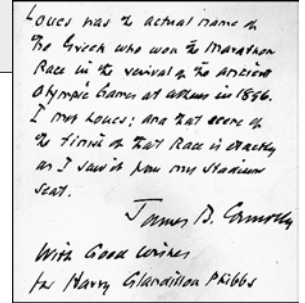 Loues was the actual name of
the Greek who won the Marathon
Race in the revival of the ancient
Olympic Games at athens in 1896.
I met Loues; and that scene of
the finish of that Race is exactly
as I saw it from my stadium
seat.
James B. Connolly
With Good wishes
for Harry Glandillon Phibbs